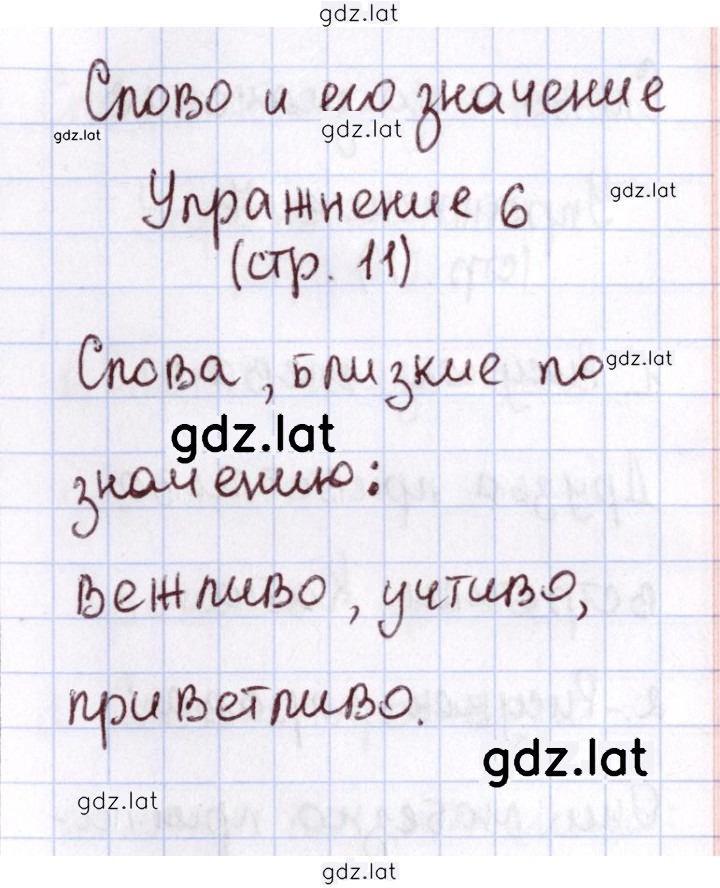 gdz.lat
Слово и его значение
gdz.lat
gdz.lat
Упражнение 6
gdz.lat
(стр. 11)
Слова, близкие по
gdz.lat
gdz.lat
значению:
вежливо, учтиво,
приветливо.
gdz.lat
gdz.lat
gdz.lat